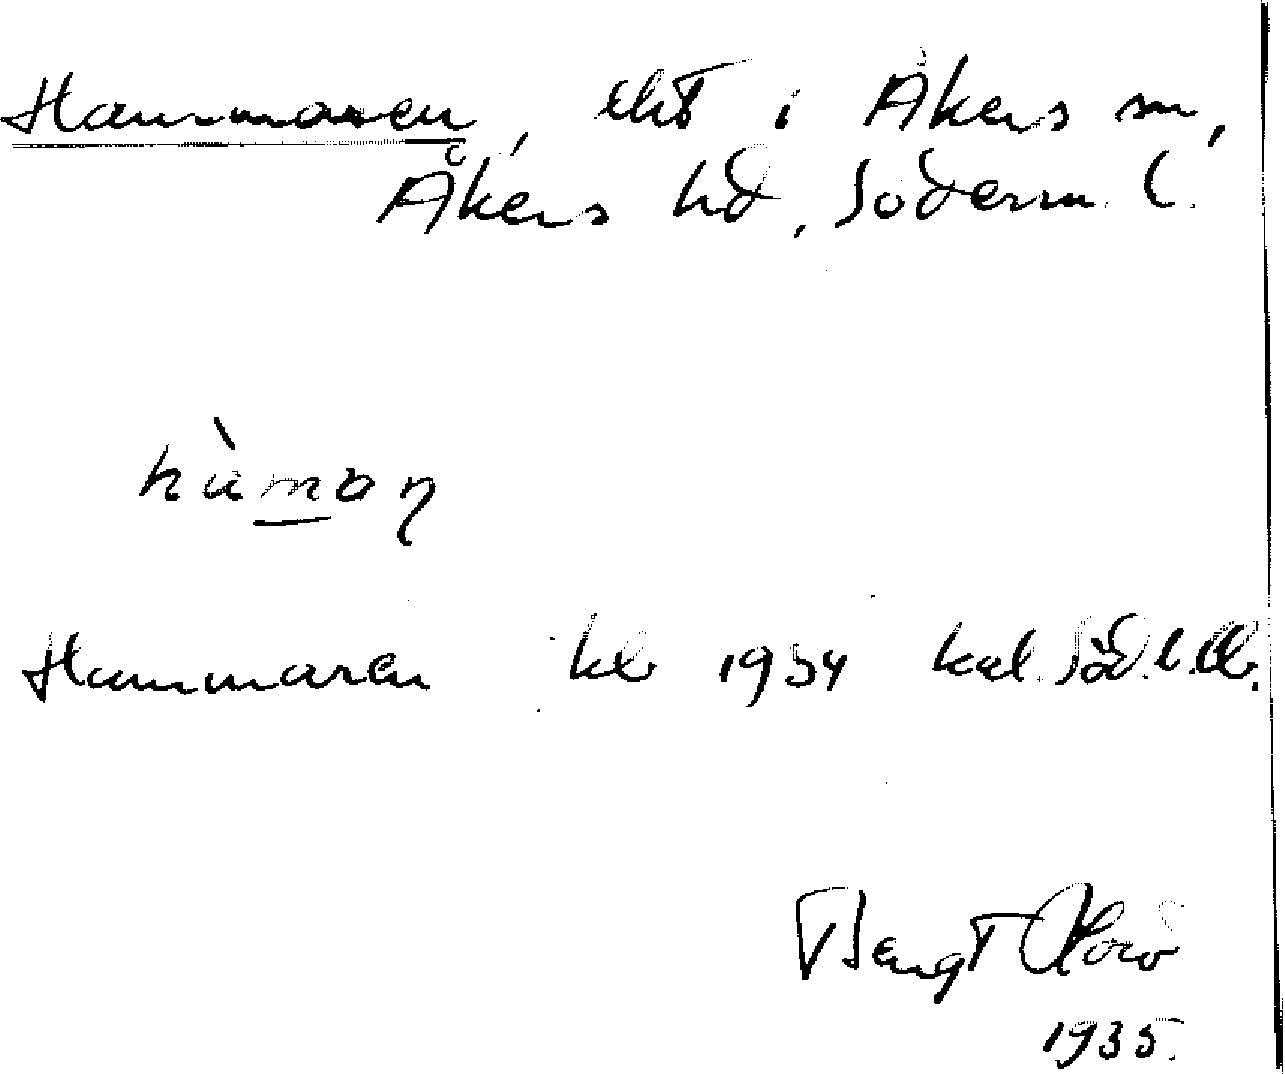 Hammaren, ekt i Åkers sn,
Åkers hd, Söderm. l.
hàmaŋ
Hammaren 1934 kal. Söd.l.
Bengt
1935.